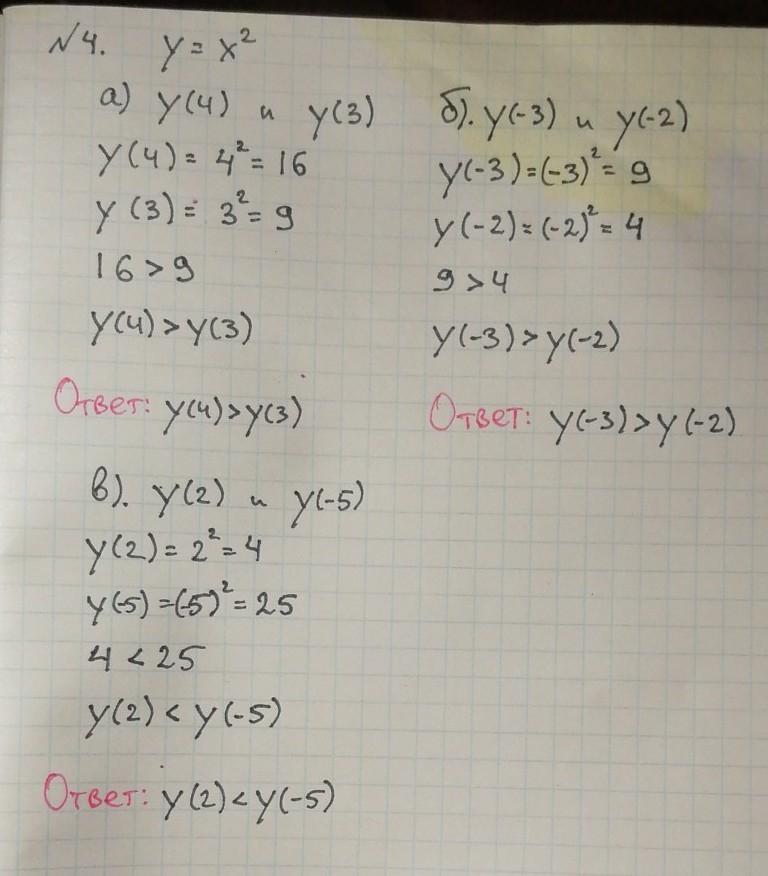 №4. y = x²
а) y(4) и y(3)
y(4) = 4² = 16
y(3) = 3² = 9
16 > 9
y(4) > y(3)
Ответ: y(4) > y(3)
б). y(-3) и y(-2)
y(-3) = (-3)² = 9
y(-2) = (-2)² = 4
9 > 4
y(-3) > y(-2)
Ответ: y(-3) > y(-2)
в). y(2) и y(-5)
y(2) = 2² = 4
y(-5) = (-5)² = 25
4 < 25
y(2) < y(-5)
Ответ: y(2) < y(-5)